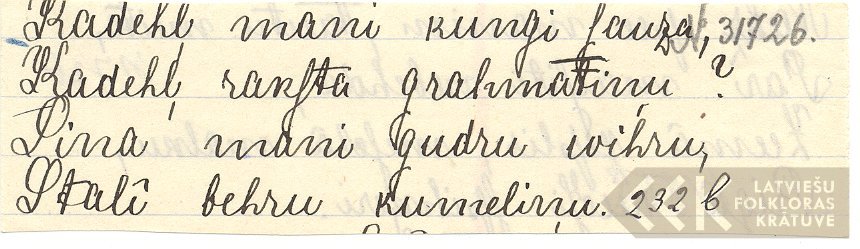 Kadehļ mani kungi ſauza, № 31726.
Kadehļ rakſta grahmatiņu?
Sina mani gudru wihru,
Stalî behru kumeliņu. 232 b
LATVIEŠU
FOLKLORAS
KRĀTUVE